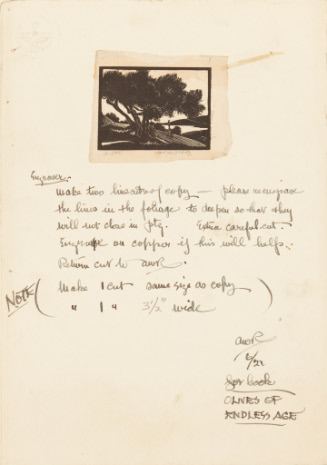 Engraver:
make two linecuts of copy — please reengrave
the lines in the foliage to deepen so that they
will not close in ptg. Extra careful cut.
Engrave on copper if this will help.
Return cut to
NOTE
( make 1 cut same size as copy )
" 1 " 3 1/2" wide
for book
OLIVES OF
ENDLESS AGE